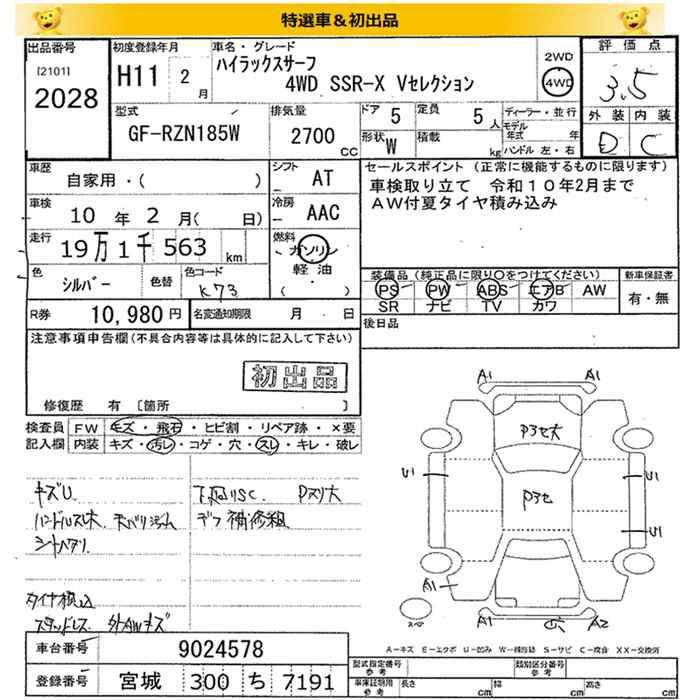 特選車＆初出品
出品番号
[2101]
2028
初度登録年月
H11 2月
車名・グレード
ハイラックスサーフ
4WD SSR-X Vセレクション
2WD
4WD
評価点
3.5
外装 内装
D C
型式
GF-RZN185W
排気量
2700
CC
ドア 5
定員 5人
形状 W
積載 kg
ディーラー・並行
モデル年式 年
ハンドル 左・右
車歴
自家用・( )
シフト
AT
車検
10年 2月( 日)
冷房
AAC
走行
19万1千563 km
燃料
ガソリン
軽油
( )
色
シルバー
色替
色コード
K73
セールスポイント (正常に機能するものに限ります)
車検取り立て 令和10年2月まで
AW付夏タイヤ積み込み
装備品(純正品に限り○をつけてください)
PS PW ABS エアB AW
SR ナビ TV カワ
新車保証書
有・無
R券 10,980円
名変通知期限 月 日
後日品
注意事項申告欄(不具合内容等は具体的に記入して下さい)
初出品
修復歴 有 [箇所 ]
検査員記入欄
FW キズ・飛石・ヒビ割・リペア跡・×要
内装 キズ・汚レ・コゲ・穴・スレ・キレ・破レ
キズU
ハンドルスレ大
下廻りSC Pスリ大
デフ補修鈑
タイヤ積込
スタッドレス 外AWキズ
A1 A1
A1 A2
Pヌセ大
Pヌセ
U1 U1
U1
A1
A1 A2
A-キズ E-エクボ U-凹み W-補修跡 S-サビ C-腐食 XX-交換済
車台番号 9024578
登録番号 宮城 300 ち 7191
型式指定番号 参考
類別区分番号 参考
車庫証明用 参考
長さ cm
幅 cm
高さ cm